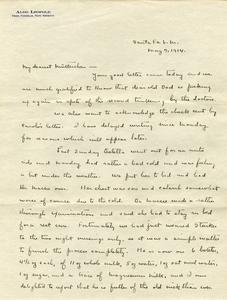 ALDO LEOPOLD
Santa Fe N. M.
May 9, 1914.
My dearest Mütterchen -
Your good letter came today and we
are much gratified to know that dear old Dad is picking
up again in spite of the second tinkering by the doctors.
We also want to acknowledge the check sent by
Carolo's letter. I have delayed writing since Monday
for reasons which will appear later.
Last Sunday Estella went out for an auto
ride and Monday had rather a bad cold and was feeling
a bit under the weather. We put her to bed and had
the nurse over. Her chest was sore and
of course due to the cold. Dr. Massie made a rather
thorough examination and said she had to stay in bed
for a rest cure. Fortunately we had just weaned Starker
to the two night nursings only, so it was a simple matter
to finish the process completely. He is now on 6 bottles,
4½ oz each, of 11 oz whole milk, 5 oz water, 10 oz oat water,
1 oz sugar, and a trace of magnesium milk, and I am
delighted to report that he is fatter of the old